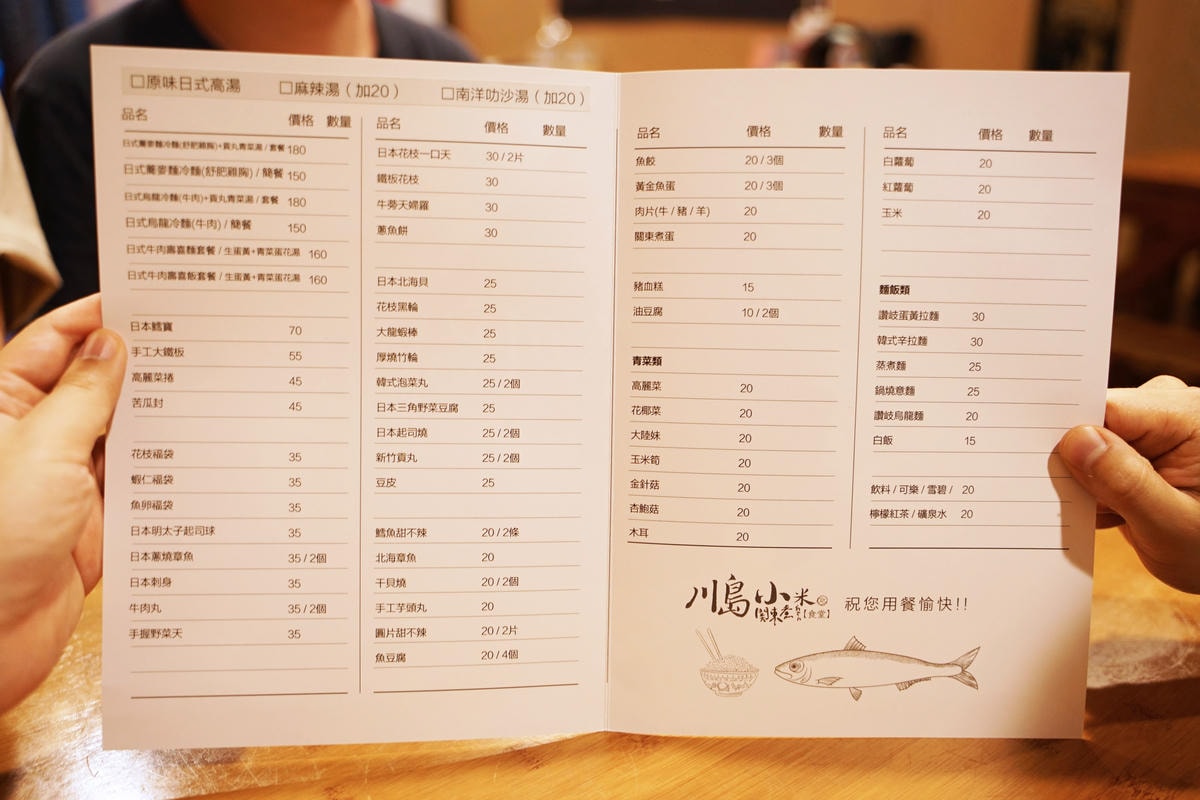 □原味日式高湯 □麻辣湯（加20） □南洋叻沙湯（加20）
品名 價格 數量
日式蕎麥麵冷麵(舒肥雞胸)+貢丸青菜湯 / 套餐 180
日式蕎麥麵冷麵(舒肥雞胸) / 簡餐 150
日式烏龍冷麵(牛肉)+貢丸青菜湯 / 套餐 180
日式烏龍冷麵(牛肉) / 簡餐 150
日式牛肉壽喜麵套餐 / 生蛋黃+青菜蛋花湯 160
日式牛肉壽喜飯套餐 / 生蛋黃+青菜蛋花湯 160
日本鱈寶 70
手工大鐵板 55
高麗菜捲 45
苦瓜封 45
花枝福袋 35
蝦仁福袋 35
魚卵福袋 35
日本明太子起司球 35
日本蔥燒章魚 35 / 2個
日本刺身 35
牛肉丸 35 / 2個
手握野菜天 35
品名 價格 數量
日本花枝一口天 30 / 2片
鐵板花枝 30
牛蒡天婦羅 30
蔥魚餅 30
日本北海貝 25
花枝黑輪 25
大龍蝦棒 25
厚燒竹輪 25
韓式泡菜丸 25 / 2個
日本三角野菜豆腐 25
日本起司燒 25 / 2個
新竹貢丸 25 / 2個
豆皮 25
鱈魚甜不辣 20 / 2條
北海章魚 20
干貝燒 20 / 2個
手工芋頭丸 20
圓片甜不辣 20 / 2片
魚豆腐 20 / 4個
品名 價格 數量
魚餃 20 / 3個
黃金魚蛋 20 / 3個
肉片(牛 / 豬 / 羊) 20
關東煮蛋 20
豬血糕 15
油豆腐 10 / 2個
青菜類
高麗菜 20
花椰菜 20
大陸妹 20
玉米筍 20
金針菇 20
杏鮑菇 20
木耳 20
品名 價格 數量
白蘿蔔 20
紅蘿蔔 20
玉米 20
麵飯類
讚岐蛋黃拉麵 30
韓式辛拉麵 30
蒸煮麵 25
鍋燒意麵 25
讚岐烏龍麵 20
白飯 15
飲料 / 可樂 / 雪碧 / 20
檸檬紅茶 / 礦泉水 20
川島小米
関東煮
【食堂】
祝您用餐愉快!!